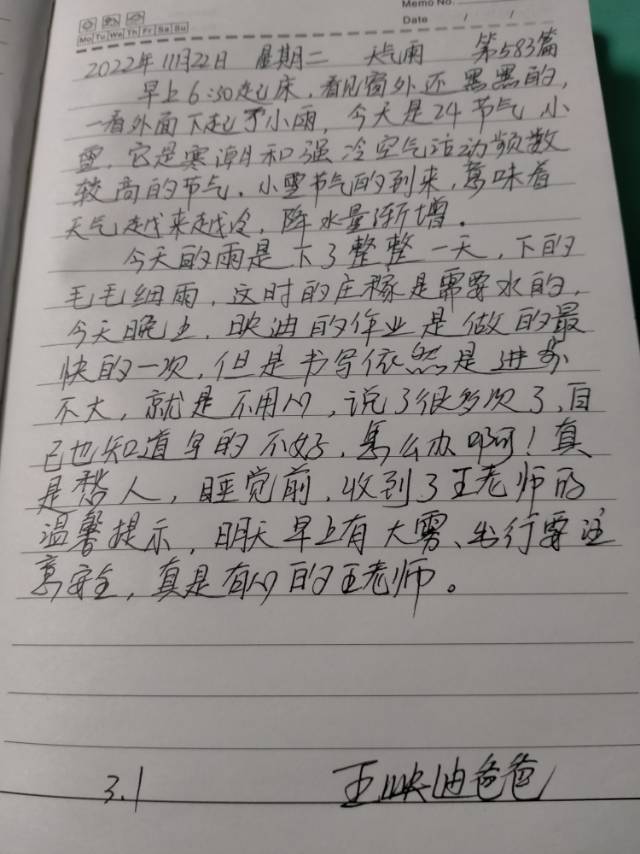 Memo No.
Mo Tu We Th Fr Sa Su
Date / /
2022年11月22日 星期二 天气雨 第583篇
早上6:50起床,看见窗外还黑黑的,
一看外面下起了小雨,今天是24节气小
雪,它是寒潮和强冷空气活动频数
较高的节气,小雪节气的到来,意味着
天气越来越冷,降水量渐增。
今天的雨是下了整整一天,下的
毛毛细雨,这时的庄稼是需要水的,
今天晚上,映油的作业是做的最
快的一次,但是书写依然是进步
不大,就是不用心,说了很多次了,自
已也知道写的不好,怎么办啊!真
是愁人,睡觉前,收到了王老师的
温馨提示,明天早上有大雾、出行要注
意安全,真是有心的王老师。
3.1
王映油爸爸